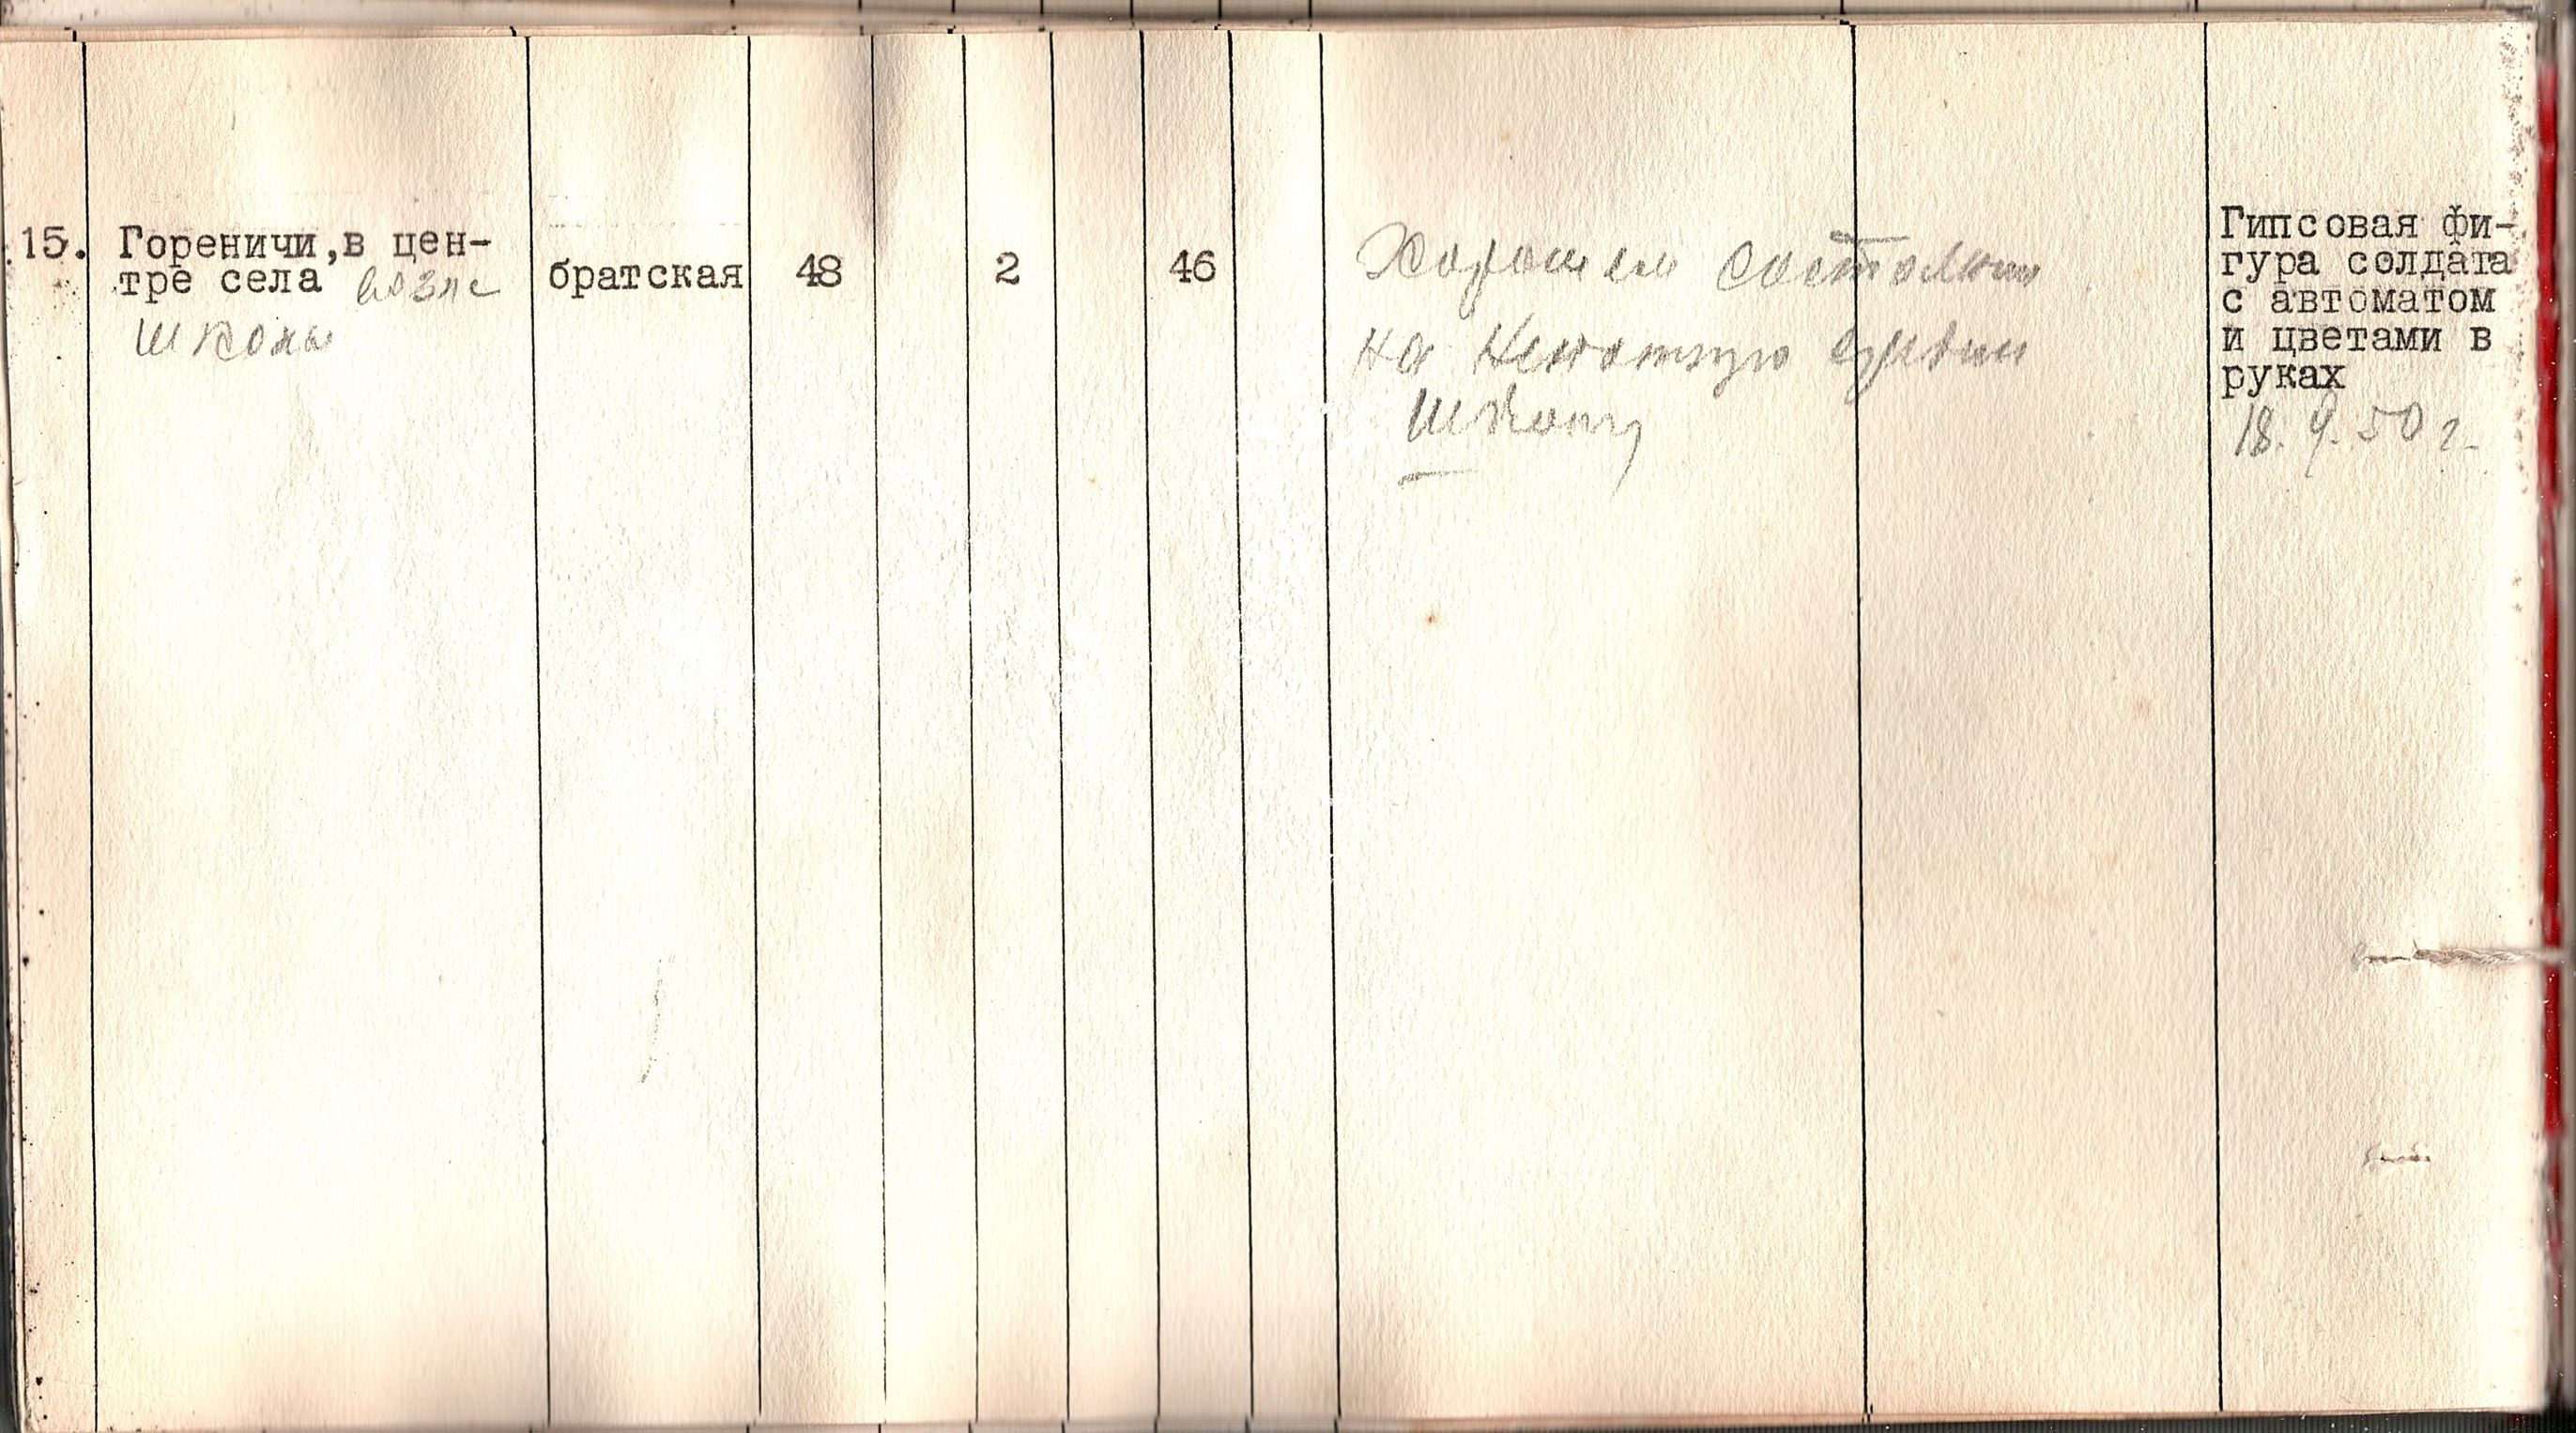 15. Гореничи,в цен-
тре села возле
школы
братская 48 2 46
Хорошем состоянии
на
школу
Гипсовая фи-
гура солдата
с автоматом
и цветами в
руках
18.9.50 г.